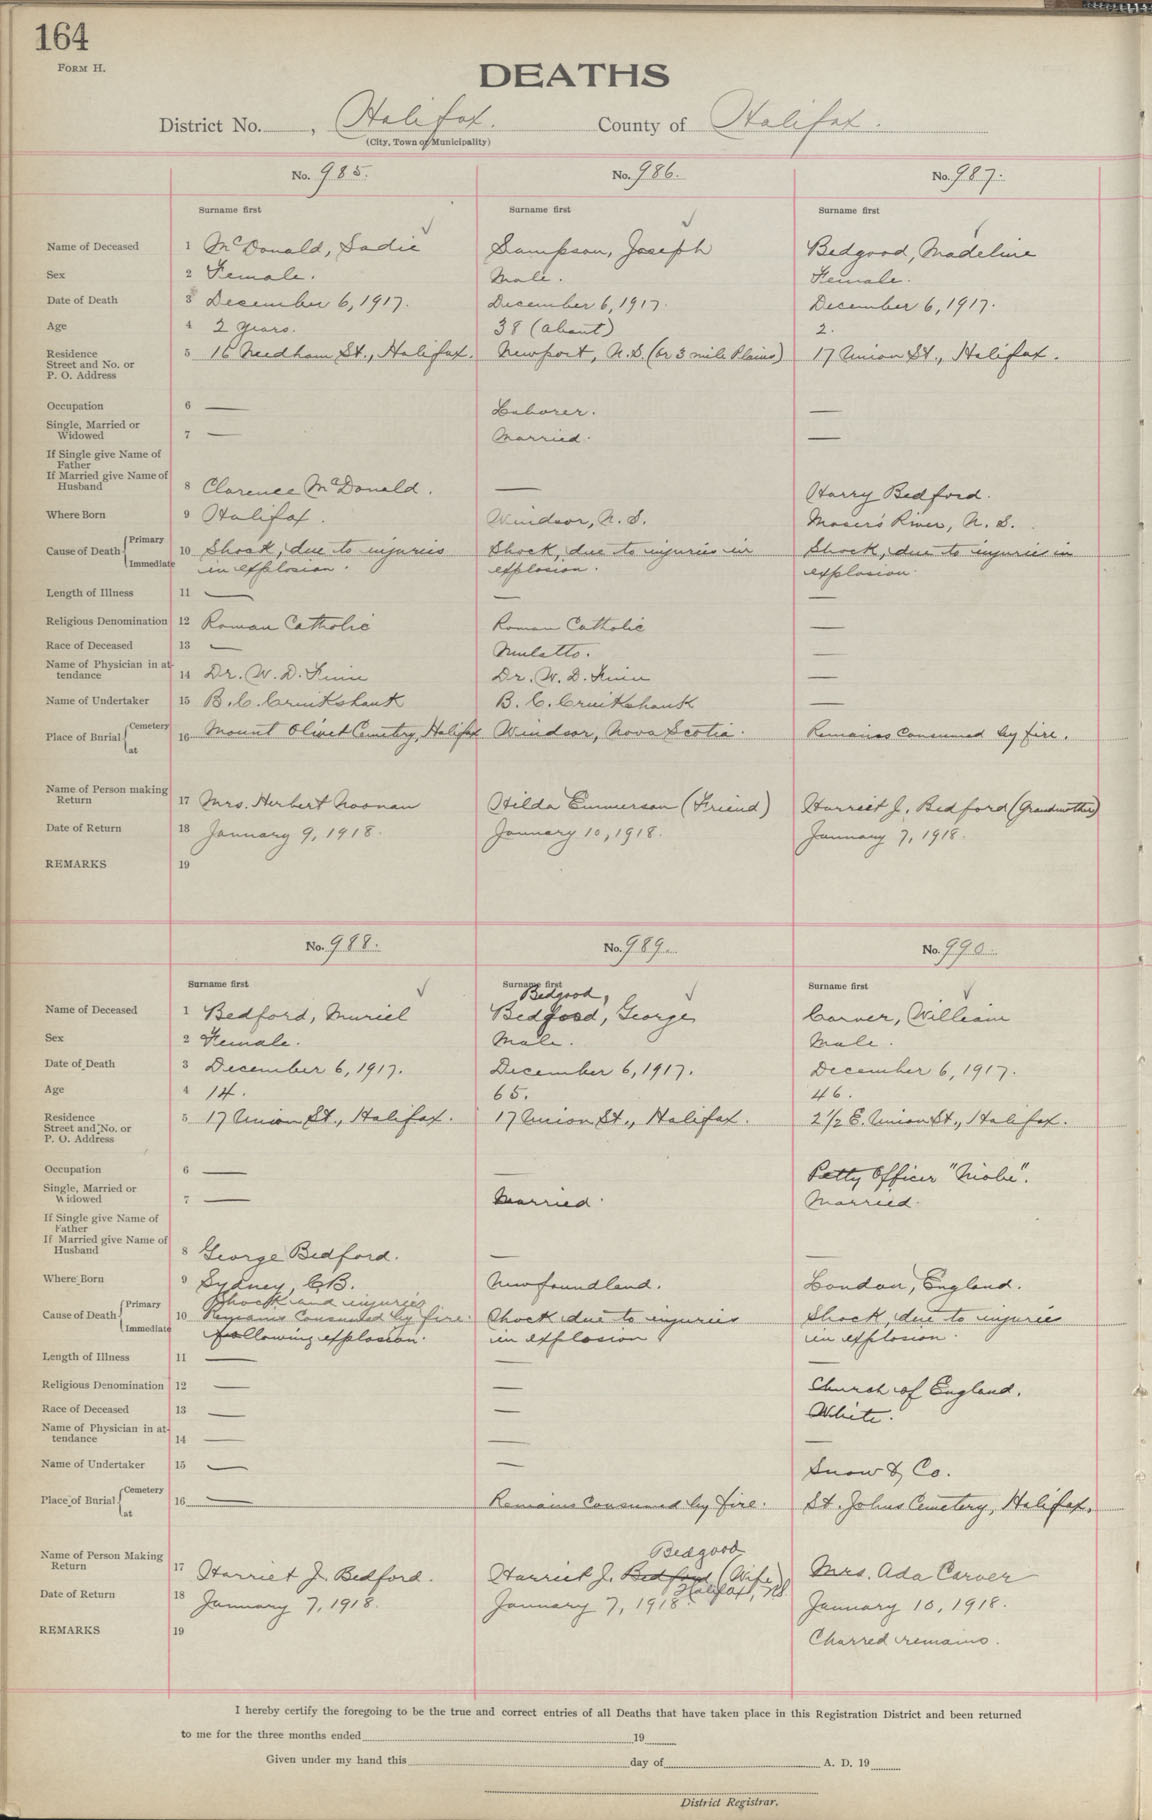 164
FORM H.
DEATHS
District No. , Halifax. County of Halifax.
(City, Town or Municipality)
No. 985. No. 986. No. 987.
Surname first Surname first Surname first
Name of Deceased 1 McDonald, Sadie Sampson, Joseph Bedgood, Madeline
Sex 2 Female. Male. Female.
Date of Death 3 December 6, 1917. December 6, 1917. December 6, 1917.
Age 4 2 years. 38 (about) 2.
Residence Street and No. or P. O. Address 5 16 Needham St., Halifax. Newport, N.S. (or 3 mile Plains) 17 Union St., Halifax.
Occupation 6 — Laborer. —
Single, Married or Widowed 7 — Married. —
If Single give Name of Father
If Married give Name of Husband 8 Clarence McDonald. — Harry Bedford.
Where Born 9 Halifax. Windsor, N.S. Moser's River, N.S.
Cause of Death { Primary Immediate 10 Shock, due to injuries Shock, due to injuries in Shock, due to injuries in
in explosion. explosion. explosion.
Length of Illness 11 — — —
Religious Denomination 12 Roman Catholic Roman Catholic —
Race of Deceased 13 — Mulatto. —
Name of Physician in attendance 14 Dr. W. D. Finn Dr. W. D. Finn —
Name of Undertaker 15 B. C. Cruikshank B. C. Cruikshank —
Place of Burial { Cemetery at 16 Mount Olivet Cemetery, Halifax Windsor, Nova Scotia. Remains consumed by fire.
Name of Person making Return 17 Mrs. Herbert Noonan Hilda Emmerson (Friend) Harriet J. Bedford (Grandmother)
Date of Return 18 January 9, 1918. January 10, 1918. January 7, 1918.
REMARKS 19
No. 988. No. 989. No. 990.
Surname first Surname first Surname first
Bedgood,
Name of Deceased 1 Bedford, Muriel Bedgood, George Carver, William
Sex 2 Female. Male. Male.
Date of Death 3 December 6, 1917. December 6, 1917. December 6, 1917.
Age 4 14. 65. 46.
Residence Street and No. or P. O. Address 5 17 Union St., Halifax. 17 Union St., Halifax. 2½ E. Union St., Halifax.
Occupation 6 — — Petty Officer "Niobe".
Single, Married or Widowed 7 — Married. Married.
If Single give Name of Father
If Married give Name of Husband 8 George Bedford. — —
Where Born 9 Sydney, C.B. Newfoundland. London, England.
Shock and injuries
Cause of Death { Primary Immediate 10 Remains consumed by fire. Shock due to injuries Shock, due to injuries
following explosion. in explosion in explosion.
Length of Illness 11 — — —
Religious Denomination 12 — — Church of England.
Race of Deceased 13 — — White.
Name of Physician in attendance 14 — — —
Name of Undertaker 15 — — Snow & Co.
Place of Burial { Cemetery at 16 — Remains consumed by fire. St. Johns Cemetery, Halifax.
Bedgood
Name of Person Making Return 17 Harriet J. Bedford. Harriet J. Bedford (Wife) Mrs. Ada Carver
Halifax, NS
Date of Return 18 January 7, 1918. January 7, 1918. January 10, 1918.
REMARKS 19 Charred remains.
I hereby certify the foregoing to be the true and correct entries of all Deaths that have taken place in this Registration District and been returned
to me for the three months ended 19
Given under my hand this day of A. D. 19
District Registrar.